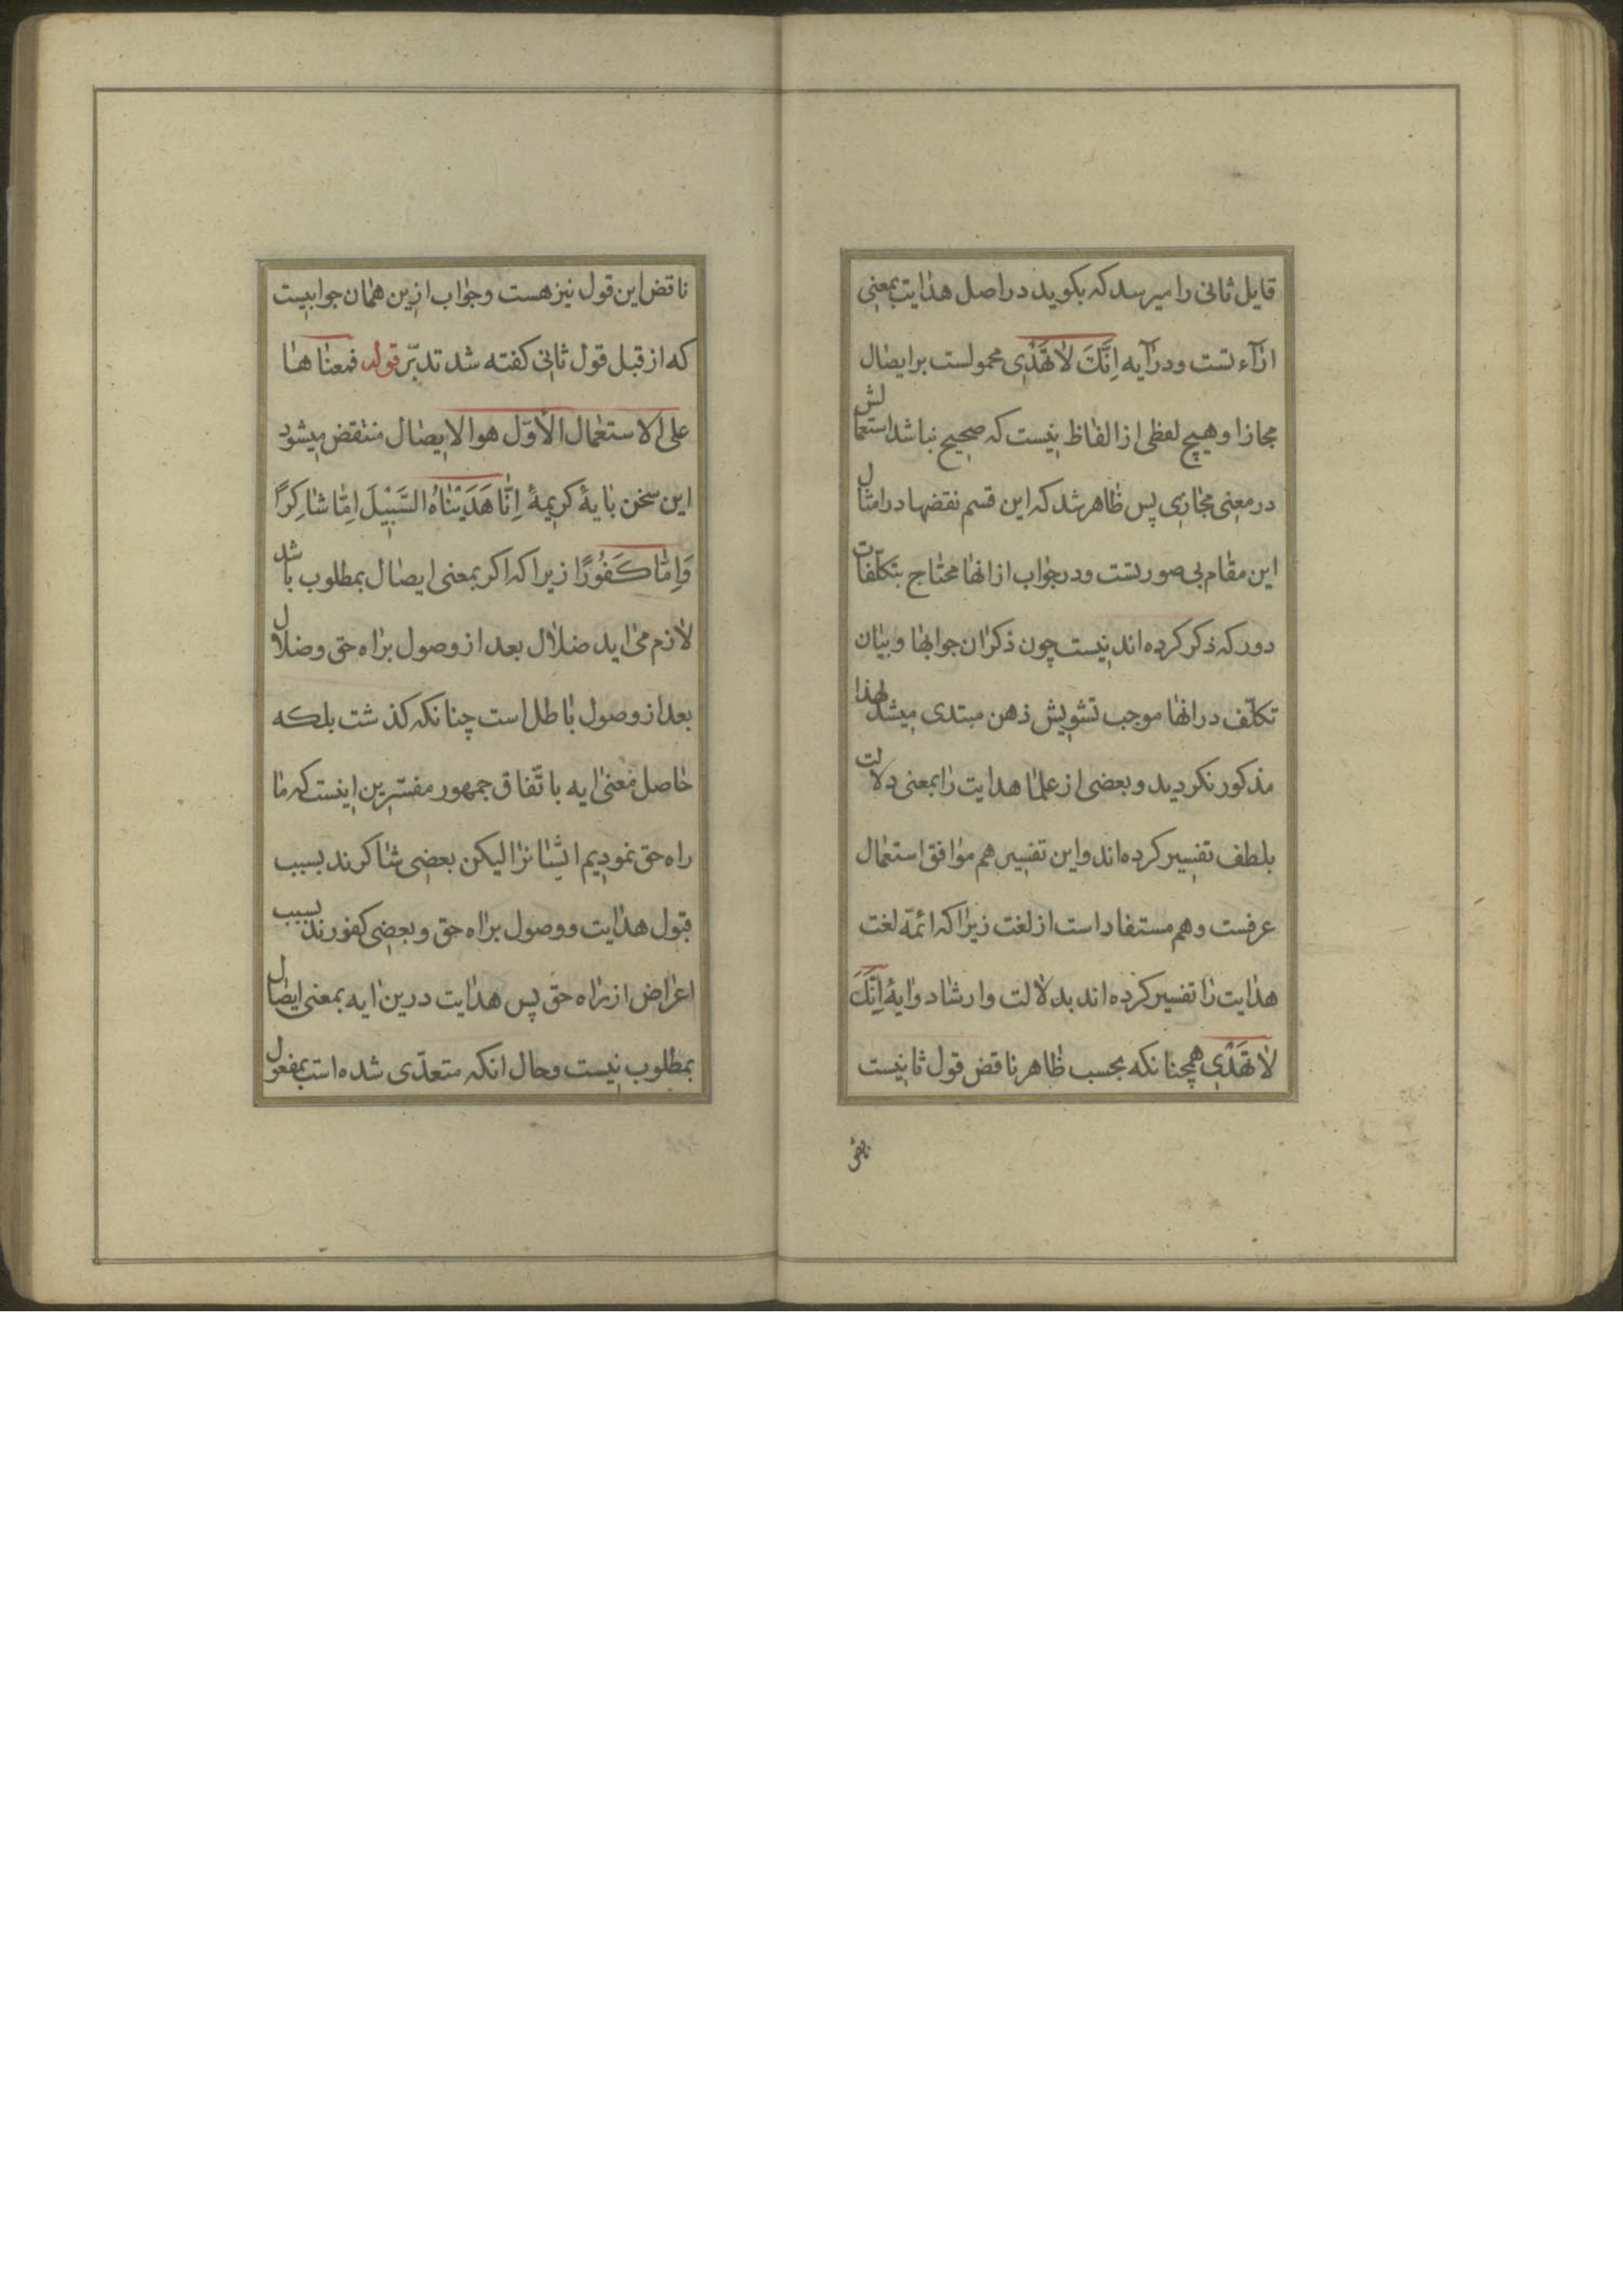 قایل ثانی را میرسد که بکوید در اصل هدایت بمعنی
اراءتست و در آیه اِنَّكَ لاٰ تَهْدْی محمولست بر ایصال
مجازا و هیچ لفظی از الفاظ نیست که صحیح نباشد استعمالش
در معنی مجازی پس ظاهر شد که این قسم نقضها در امثال
این مقام بی صورتست و در جواب از انها محتاج بتکلّفات
دور که ذکر کرده اند نیست چون ذکر ان جوابها و بیان
تکلّف در انها موجب تشویش ذهن مبتدی میشد لهذا
مذکور نکردید و بعضی از علما هدایت را بمعنی دلالت
بلطف تفسیر کرده اند و این تفسیر هم موافق استعمال
عرفست و هم مستفاد است از لغت زیرا که ائمّه لغت
هدایت را تفسیر کرده اند بدلالت و ارشاد و ایهٔ اِنَّكَ
لاٰ تَهْدْی همچنانکه بحسب ظاهر ناقض قول ثانیست
ناقض
ناقض این قول نیز هست و جواب ازین همان جوابیست
که از قبل قول ثانی کفته شد تدبّر قوله فمعناها
علی الاستعمال الأوّل هو الایصال منتقض میشود
این سخن بایهٔ کریمهٔ اِنّٰا هَدَیْنٰاهُ السَّبِیْلَ اِمّٰا شٰاکِرًا
وَاِمّٰا کَفُوْرًا زیرا که اکر بمعنی ایصال بمطلوب باشد
لازم می اید ضلال بعد از وصول براه حق و ضلال
بعد از وصول باطل است چنانکه کذشت بلکه
حاصل معنی ایه باتّفاق جمهور مفسّرین اینست که ما
راه حق نمودیم ایشانرا لیکن بعضی شاکرند بسبب
قبول هدایت و وصول براه حق و بعضی کفورند بسبب
اعراض از راه حق پس هدایت درین ایه بمعنی ایصال
بمطلوب نیست و حال انکه متعدّی شده است بمفعول